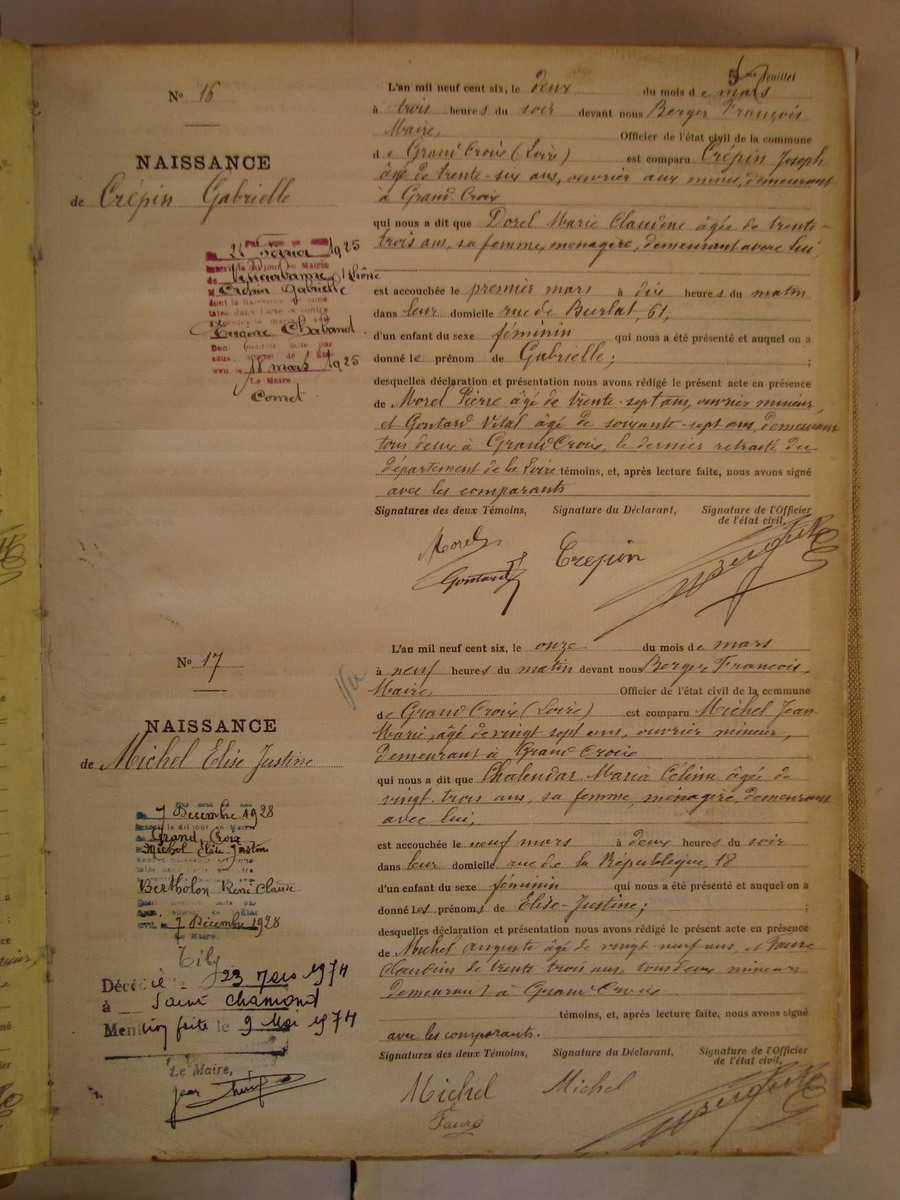 5me feuillet
No 16
NAISSANCE
de Crépin Gabrielle
24 Février 1925
inscrit le dit jour en Mairie
de Villeurbanne, Rhône
Crépin Gabrielle
dont la naissance est cons
tatée dans l'acte ci contre
Eugène Chabanol
18 mars 1925
Le Maire
Comet
L'an mil neuf cent six, le deux du mois de mars
à trois heures du soir devant nous Berger François
Maire, Officier de l'état civil de la commune
de Grand'Croix (Loire) est comparu Crépin Joseph
âgé de trente-six ans, ouvrier aux mines, demeurant
à Grand-Croix
qui nous a dit que Dorel Marie Claudine âgée de trente-
trois ans, sa femme, ménagère, demeurant avec lui,
est accouchée le premier mars à dix heures du matin
dans leur domicile rue de Burlat, 61,
d'un enfant du sexe féminin qui nous a été présenté et auquel on a
donné le prénom de Gabrielle;
desquelles déclaration et présentation nous avons rédigé le présent acte en présence
de Morel Pierre âgé de trente-sept ans, ouvrier mineur,
et Gontard Vital âgé de soixante-sept ans, demeurant
tous deux à Grand'Croix, le dernier retraité du
département de la Loire témoins, et, après lecture faite, nous avons signé
avec les comparants
Signatures des deux Témoins, Signature du Déclarant, Signature de l'Officier
de l'état civil,
Morel
Gontard
Crepin
No 17
NAISSANCE
de Michel Elise Justine
7 Décembre 1928
Grand, Croix
Michel Elise Justine
Bertholon René Claude
7 Décembre 1928
Le Maire
Décédée le 23 Mars 1974
à Saint Chamond
Mention faite le 9 Mai 1974
Le Maire,
Vu
L'an mil neuf cent six, le onze du mois de mars
à neuf heures du matin devant nous Berger François,
Maire Officier de l'état civil de la commune
de Grand'Croix (Loire) est comparu Michel Jean
Marie, âgé de vingt sept ans, ouvrier mineur,
demeurant à Grand'Croix
qui nous a dit que Chalendar Maria Célina âgée de
vingt-trois ans, sa femme, ménagère, demeurant
avec lui,
est accouchée le neuf mars à deux heures du soir
dans leur domicile rue de la République, 18
d'un enfant du sexe féminin qui nous a été présenté et auquel on a
donné les prénoms de Elise-Justine;
desquelles déclaration et présentation nous avons rédigé le présent acte en présence
de Michel Auguste âgé de vingt neuf ans, et Faure
Claudius de trente-trois ans, tous deux mineurs
demeurant à Grand'Croix
témoins, et, après lecture faite, nous avons signé
avec les comparants.
Signatures des deux Témoins, Signature du Déclarant, Signature de l'Officier
de l'état civil,
Michel Michel
Faure